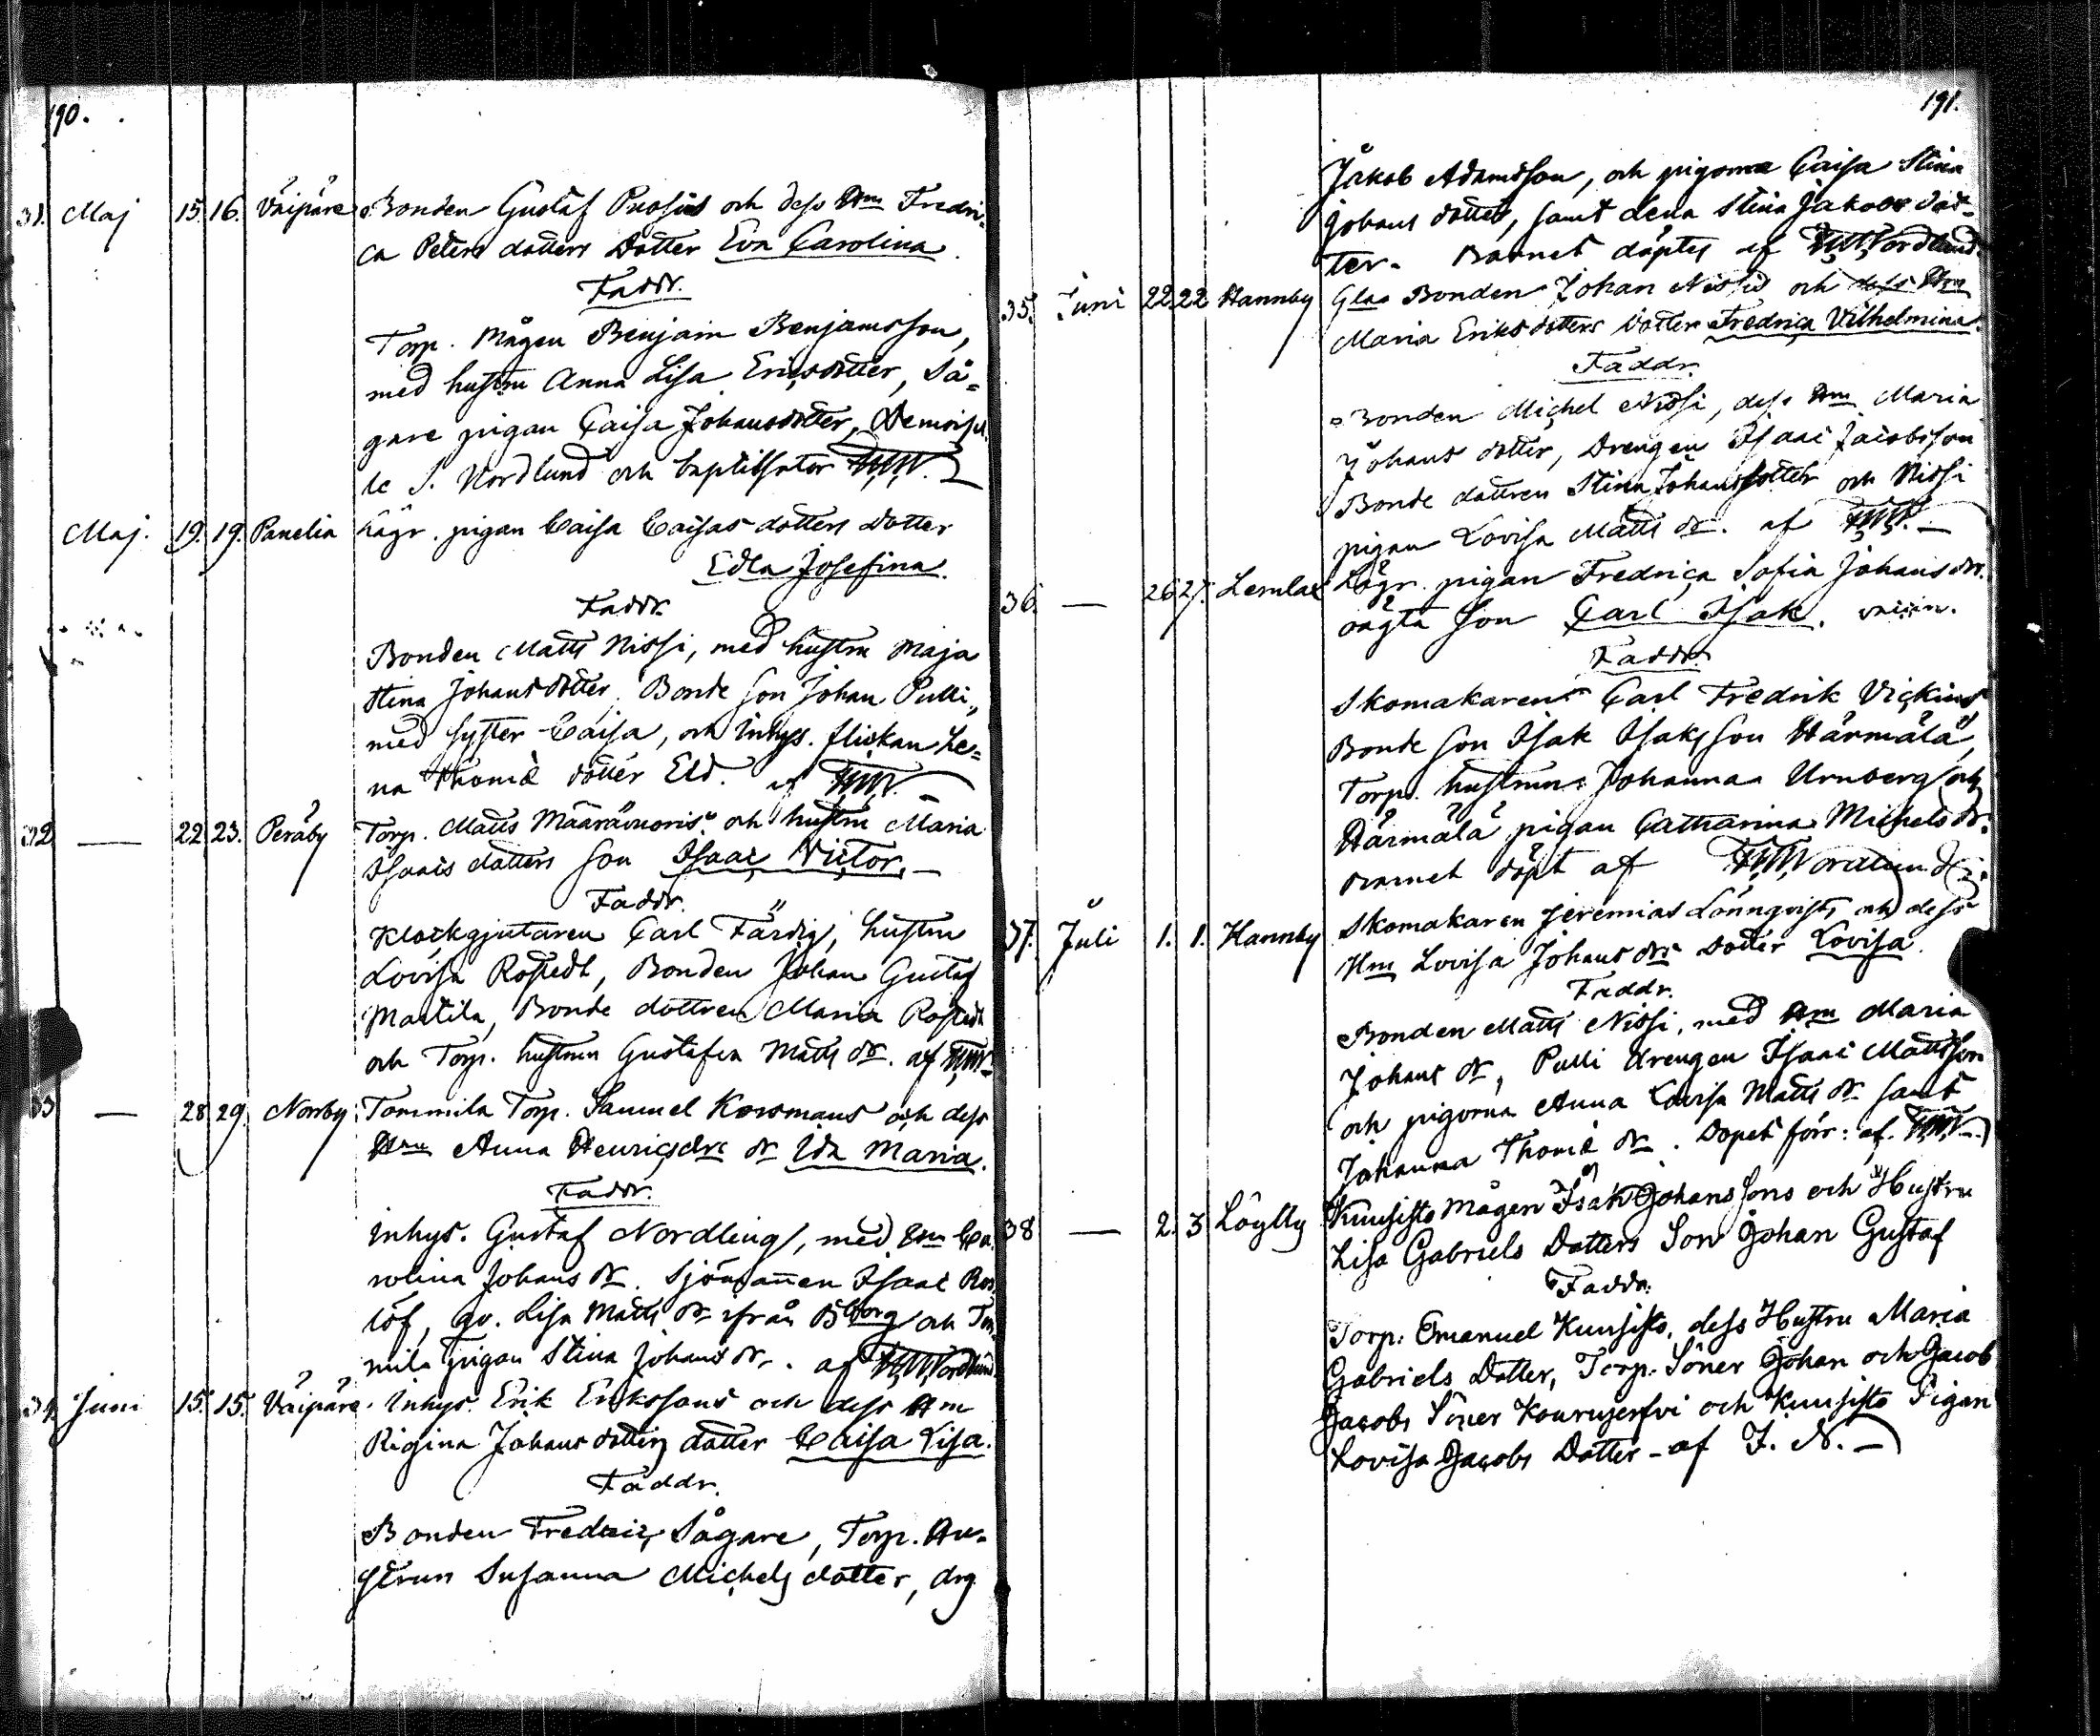 190.
31. Maj 15. 16. Väipäre Bonden Gustaf Prosius och dess Hm Fredri-
ca Peters dotters Dotter Eva Carolina.
Faddr.
Torp. Mågen Benjam Benjamsson,
med hustru Anna Lisa Ericsdotter, Så-
gare pigan Caisa Johansdotter, Demoisel-
le S. Nordlund och baptisator
Maj. 19. 19. Panelia Lägr. pigan Caisa Caisas dotters dotter
Edla Josefina.
Faddr.
Bonden Matts Nissi, med hustru Maja
Stina Johansdotter. Bonde son Johan Pulli,
med syster Caisa, och Inhys. flickan Le-
na Thomæ dotter Eld. af
32 — 22. 23. Peräby Torp. Matts Määrävuoris och hustru Maria
Isaacs dotters son Isaac Victor. —
Faddr.
Klockgjutaren Carl Färdig, hustru
Lovisa Rostedt, Bonden Johan Gustaf
Martila, Bonde dottren Maria Rostedt
och Torp. hustrun Gustafva Matts dr. af
33 — 28 29. Norrby Tommila Torp. Samuel Korsmans och dess
Hru Anna Henricsdrs dr Ida Maria.
Faddr.
Inhys. Gustaf Nordling, med Hru Ca-
rolina Johans dr. Sjömannen Isaac Ros-
löf, qv. Lisa Matts dr ifrån Bborg och Tom-
mila pigan Stina Johans dr. af Nordlund
34. Juni 15. 15. Väipäre Inhys Erik Erikssons och dess Hm
Rigina Johans dotters dotter Caisa Lisa.
Faddr.
Bonden Fredric Sågare, Torp. Hu-
strun Susanna Michels dotter, drg
191.
Jakob Adamsson, och pigorna Caisa Stina
Johans dotter, samt Lena Stina Jakobs dot-
ter. Barnet döptes af Nordlund.
35. Juni 22. 22 Hannby Glas Bonden Johan Nissis och dess Hru
Maria Eriks dotters dotter Fredrica Vilhelmina.
Faddr.
Bonden Michel Nissi, dess Hm Maria
Johans dotter, Drengen Isaac Jacobsson
Bonde dottren Stina Johansdotter och Nissi
pigan Lovisa Matts dr. af
36. — 26 27. Lemlax Lägr. pigan Fredrica Sofia Johans drs.
oägta son Carl Isak.
Faddr.
Skomakaren Carl Fredrik Vickius
Bonde son Isak Isaksson Härmälä,
Torp. hustrun Johanna Urnberg och
Härmälä pigan Catharina Michels dr.
Barnet döpt af Nordlund
37. Juli 1. 1. Hannby Skomakaren Jeremias Lönnqvists och dess
Hm Lovisa Johans drs dotter Lovisa.
Faddr.
Bonden Matts Nissi, med Hm Maria
Johans dr, Pulli drengen Isaac Mattsson
och pigorna Anna Lovisa Matts dr samt
Johanna Thomæ dr. Dopet förr: af
38 — 2. 3 Löytty Kuusisto Mågen Isak Johanssons och Hustru
Lisa Gabriels Dotters Son Johan Gustaf
Faddr.
Torp. Emanuel Kuusisto, dess Hustru Maria
Gabriels Dotter, Torp. Söner Johan och Jacob
Jacobs Söner Kourujerfvi och Kuusisto Pigan
Lovisa Jacobs Dotter - af F. N. —